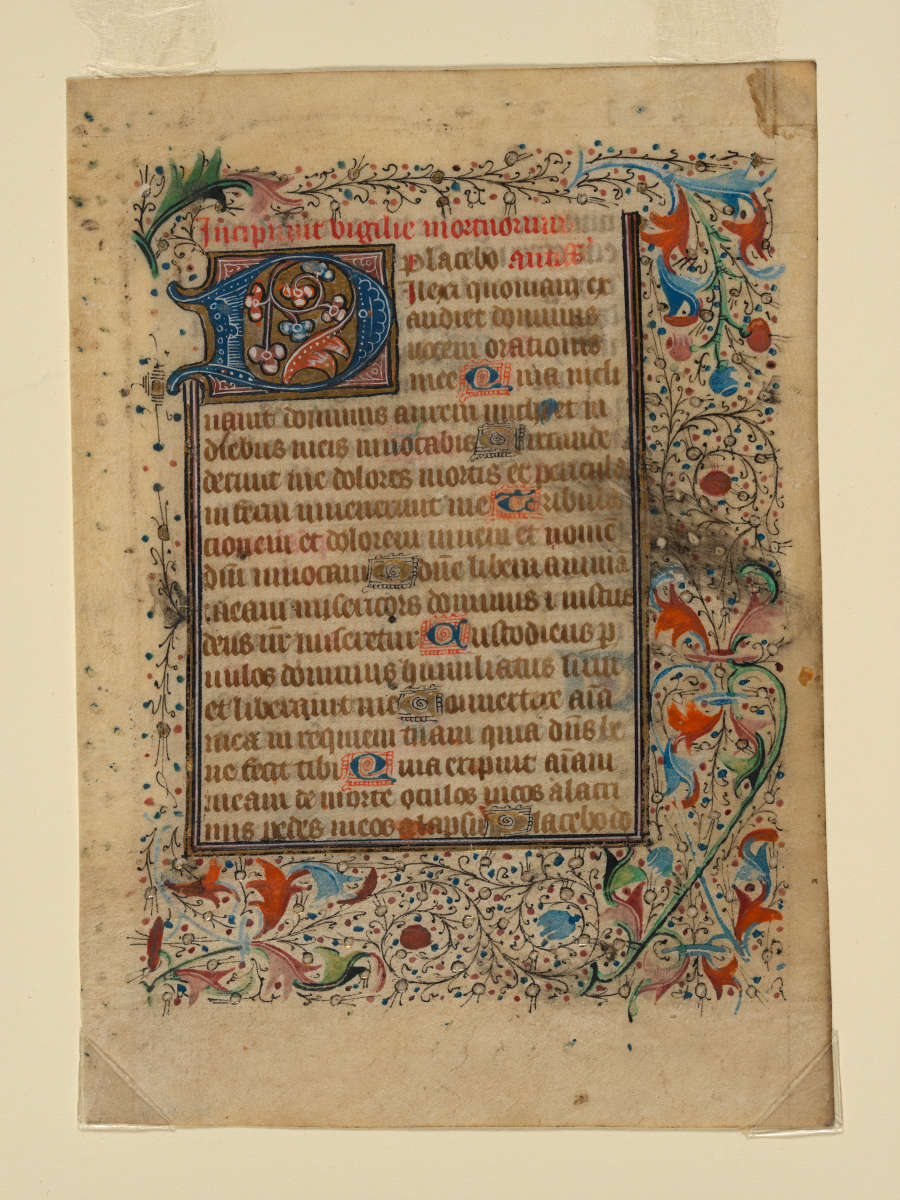 Incipiunt vigilie mortuorum
placebo
Dilexi quoniam ex
audiet dominus
uocem orationis
mee Quia incli
nauit dominus aurem michi et in
diebus meis inuocabo Circunde
derunt me dolores mortis et pericula
inferni inuenerunt me Tribula
tionem et dolorem inueni et nomē
dn̄i inuocaui O dn̄e libera animā
meam misericors dominus ⁊ iustus
deus nr̄ miseretur Custodiens p
uulos dominus humiliatus sum
et liberauit me Conuertere aīa
mea in requiem tuam quia dn̄s be
ne fecit tibi Quia eripuit aīam
meam de morte oculos meos a lacri
mis pedes meos a lapsu Placebo do